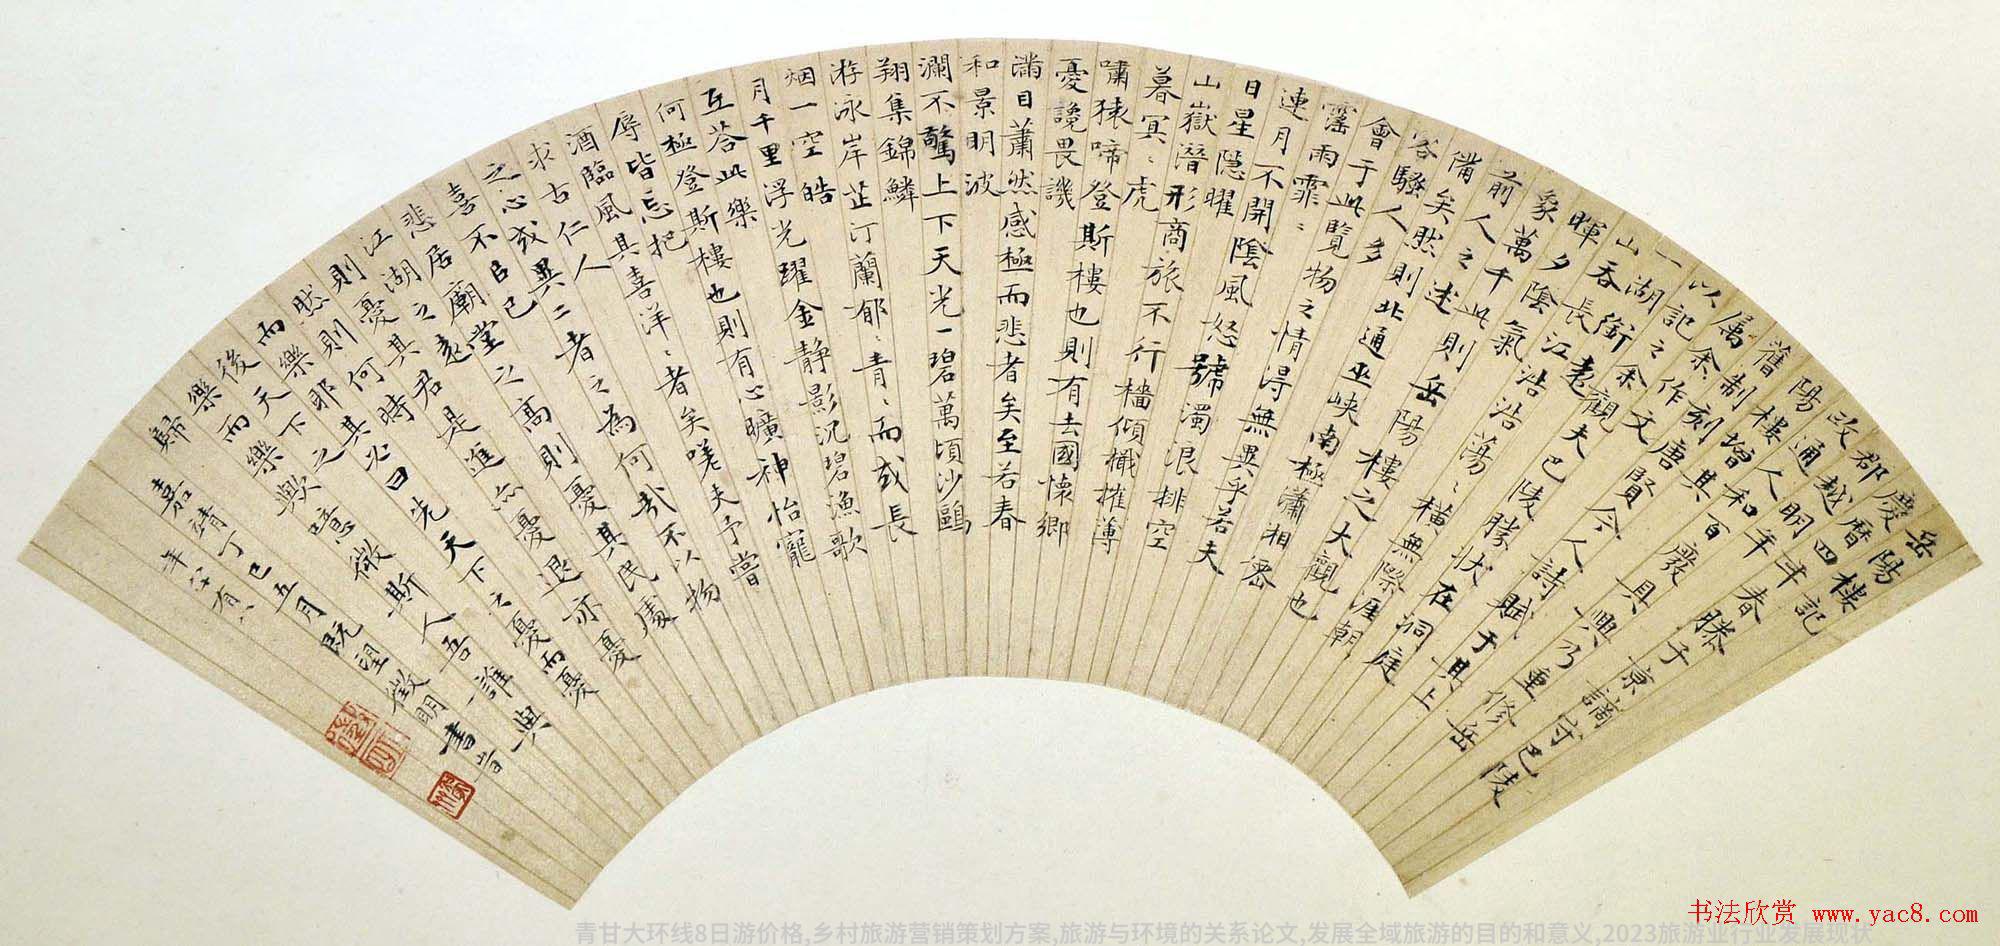 岳陽樓記
慶曆四年春滕子京謫守巴陵
郡越明年
政通人和百廢具興乃重修岳
陽樓增
舊制刻唐賢今人詩賦于其上
屬余作文
以記之余觀夫巴陵勝狀在洞庭
一湖銜遠
山吞長江浩浩蕩〻橫無際涯朝
暉夕陰氣
象萬千此則岳陽樓之大觀也
前人之述
備矣然則北通巫峽南極瀟湘
客騷人多
會于此覽物之情得無異乎若夫
霪雨霏〻
連月不開陰風怒號濁浪排空
日星隱曜
山嶽潛形商旅不行檣傾檝摧薄
暮冥〻虎
嘯猿啼登斯樓也則有去國懷鄉
憂讒畏譏
滿目蕭然感極而悲者矣至若春
和景明波
瀾不驚上下天光一碧萬頃沙鷗
翔集錦鱗
游泳岸芷汀蘭郁〻青〻而或長
烟一空皓
月千里浮光躍金静影沉碧漁歌
互荅此樂
何極登斯樓也則有心曠神怡寵
辱皆忘把
酒臨風其喜洋〻者矣嗟夫予嘗
求古仁人
之心或異二者之為何哉不以物
喜不㠯己
悲居廟堂之高則憂其民處
江湖之遠
則憂其君是進亦憂退亦憂
然則何時
而樂耶其必曰先天下之憂而憂
後天下之
樂而樂歟噫微斯人吾誰與
歸
嘉靖丁巳五月既望徵明書時
年八十有八
书法欣赏 www.yac8.com
青甘大环线8日游价格,乡村旅游营销策划方案,旅游与环境的关系论文,发展全域旅游的目的和意义,2023旅游业行业发展现状